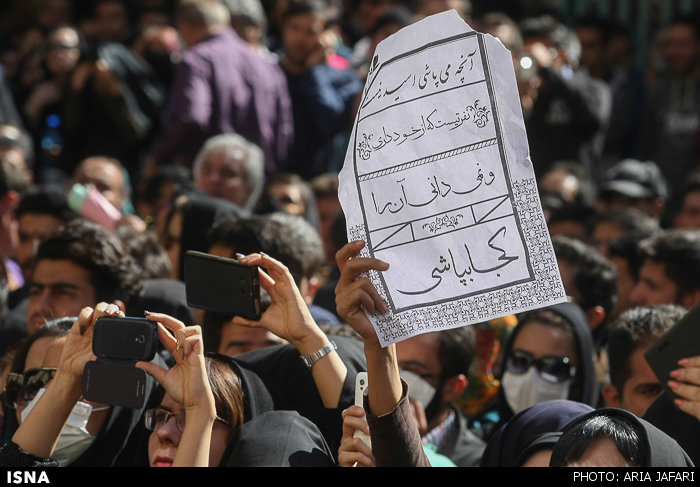 آنچه می پاشی اسید نیست
نفرتیست که از خود داری
و نمی دانی آن را
کجا بپاشی
ISNA
PHOTO: ARIA JAFARI